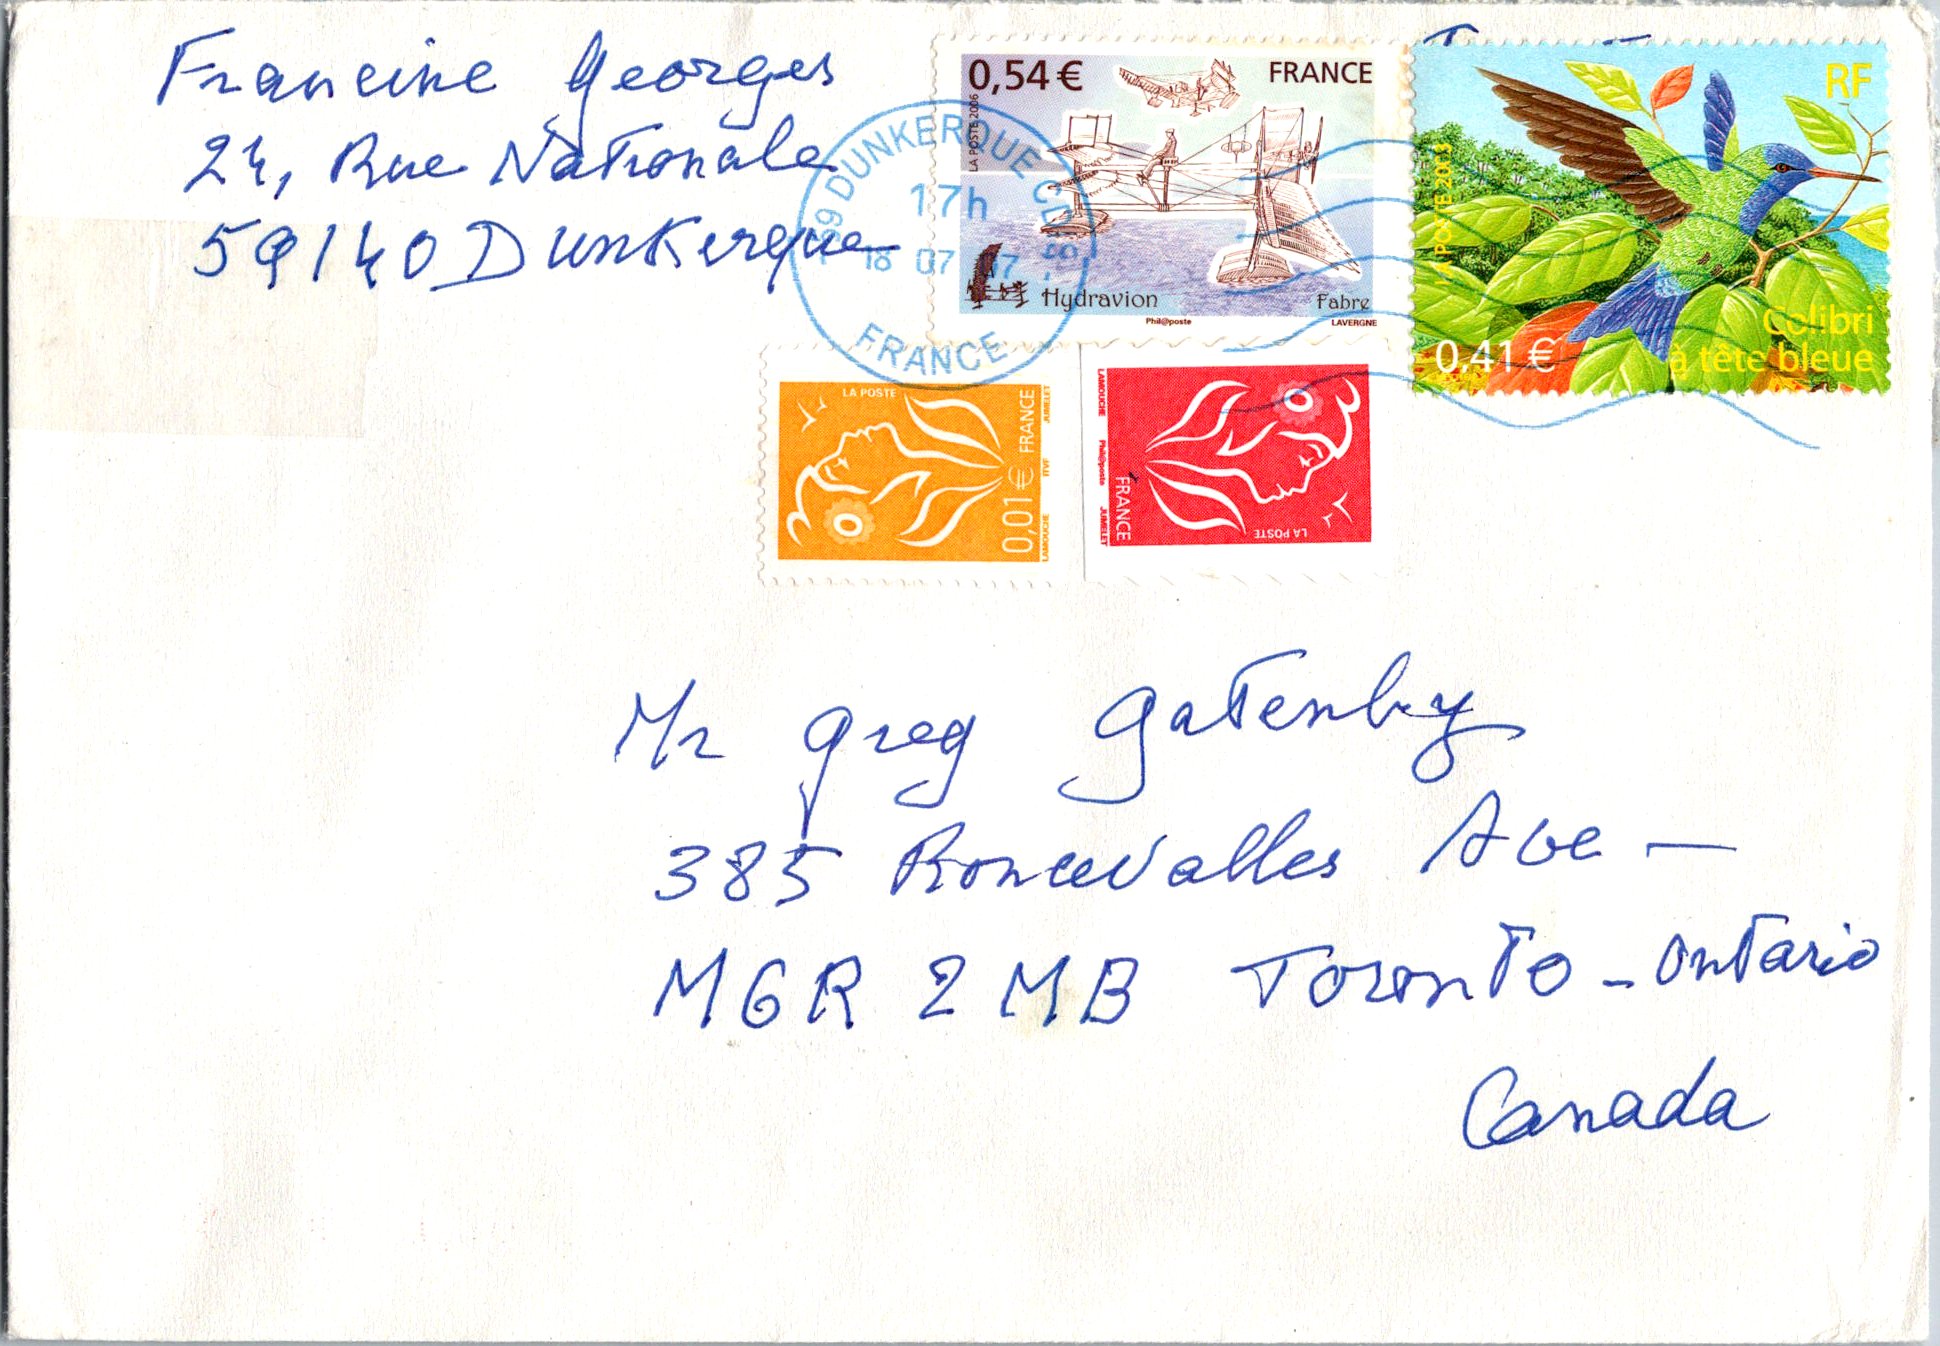 Francine Georges
24, Rue Nationale
59140 Dunkerque
0,54 €
FRANCE
LA POSTE 2006
Hydravion
Fabre
Phil@poste
LAVERGNE
RF
LA POSTE 2003
Colibri
à tête bleue
0,41 €
DUNKERQUE
17h
18 07 07
FRANCE
LA POSTE
0,01 € FRANCE
LAMOUCHE ITVF JUMELET
LAMOUCHE Phil@poste JUMELET
FRANCE
LA POSTE
Mr Greg Gatenby
385 Roncevalles Ave -
M6R 2MB Toronto - Ontario
Canada